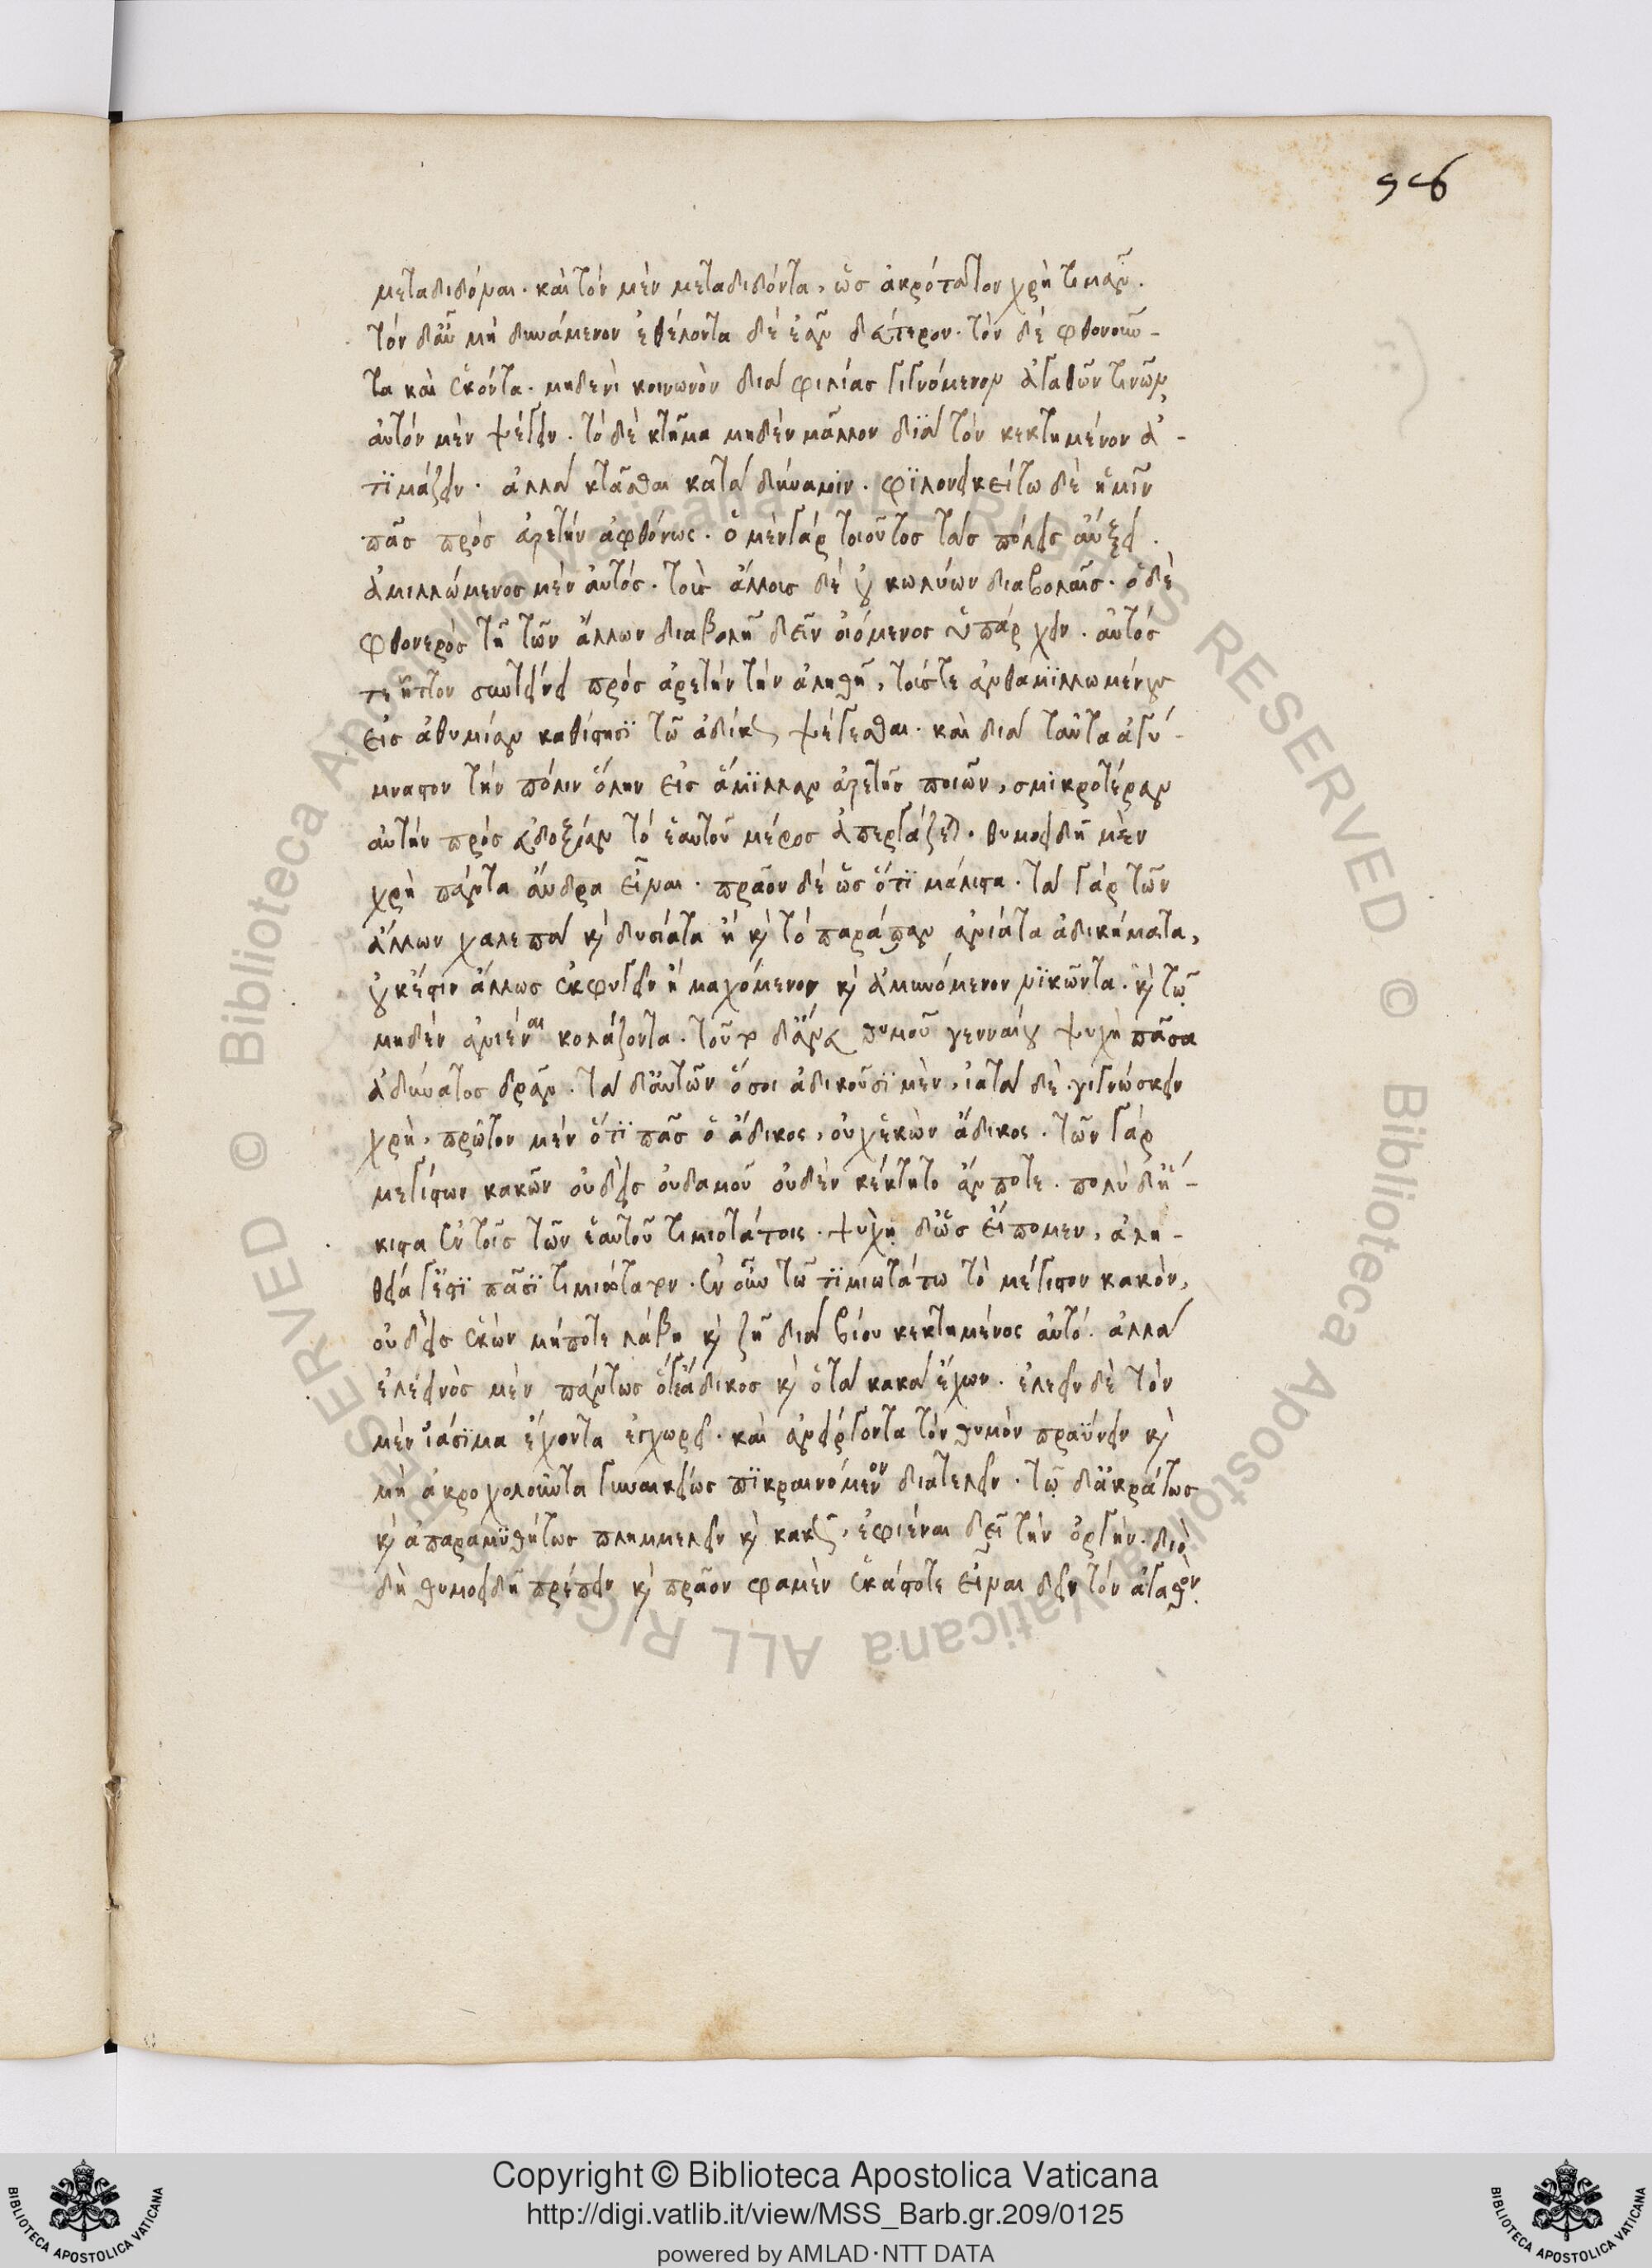 ϟϛ
μεταδιδόναι· καὶ τὸν μὲν μεταδιδόντα, ὡς ἀκρότατον χρὴ τιμᾶν.
τὸν δ' αὖ μὴ δυνάμενον ἐθέλοντα δὲ ἐᾶν δεύτερον. τὸν δὲ φθονοῦν-
τα καὶ ἑκόντα. μηδενὶ κοινωνὸν διὰ φιλίας γιγνόμενον ἀγαθῶν τινῶν,
αὐτὸν μὲν ψέγειν. τὸ δὲ κτῆμα μηδὲν μᾶλλον διὰ τὸν κεκτημένον ἀ-
τϊμάζειν. ἀλλὰ κτᾶσθαι κατὰ δύναμϊν. φϊλονεικείτω δὲ ἡμῖν
πᾶς πρὸς ἀρετὴν ἀφθόνως. ὁ μὲν γὰρ τοιοῦτος τὰς πόλεις αὔξει.
ἁμιλλώμενος μὲν αὐτός. τοὺς ἄλλους δὲ οὐ κωλύων διαβολαῖς. ὁ δὲ
φθονερὸς τῇ τῶν ἄλλων διαβολῇ δεῖν οἰόμενος ὑπάρχειν. αὐτός
τε ἧττον συντείνει πρὸς ἀρετὴν τὴν ἀληθῆ, τούς τε ἀνθαμϊλλωμένους
εἰς ἀθυμίαν καθίστησϊ τῷ ἀδίκως ψέγεσθαι. καὶ διὰ ταῦτα ἀγύ-
μναστον τὴν πόλιν ὅλην εἰς ἅμϊλλαν ἀρετῆς ποιῶν, σμϊκροτέραν
αὐτὴν πρὸς εὐδοξίαν τὸ ἑαυτοῦ μέρος ἀπεργάζεται. θυμοειδῆ μὲν
χρὴ πάντα ἄνδρα εἶναι. πρᾶον δὲ ὡς ὅτϊ μάλιστα. τὰ γὰρ τῶν
ἄλλων χαλεπὰ καὶ δυσίατα ἢ καὶ τὸ παράπαν ἀνιάτα ἀδικήματα,
οὐκ ἔστιν ἄλλως ἐκφυγεῖν ἢ μαχόμενον καὶ ἀμυνόμενον νϊκῶντα. καὶ τῷ
μηδὲν ἀνιέναι κολάζοντα. τοῦτο δ' ἄνευ θυμοῦ γενναίου ψυχὴ πᾶσα
ἀδύνατος δρᾶν. τὰ δ' αὖ τῶν ὅσοι ἀδικοῦσϊ μὲν, ἰατὰ δὲ. γιγνώσκειν
χρὴ, πρῶτον μὲν ὅτϊ πᾶς ὁ ἄδικος, οὐχ ἑκὼν ἄδικος. τῶν γὰρ
μεγίστων κακῶν οὐδεὶς οὐδαμοῦ οὐδὲν κέκτητο ἄν ποτε. πολὺ δὲ ἥ-
κιστα ἐν τοῖς τῶν ἑαυτοῦ τιμιοτάτοις. ψυχὴ δ' ὡς εἴπομεν, ἀλη-
θείᾳ γ' ἐστϊ πᾶσϊ τιμιώτατον. ἐν οὖν τῷ τϊμιωτάτῳ τὸ μέγιστον κακὸν,
οὐδεὶς ἑκὼν μήποτε λάβῃ καὶ ζῇ διὰ βίου κεκτημένος αὐτό. ἀλλὰ
ἐλεεινὸς μὲν πάντως ὅ γε ἄδικος καὶ ὁ τὰ κακὰ ἔχων. ἐλεεῖν δὲ τὸν
μὲν ἰάσϊμα ἔχοντα ἐγχωρεῖ. καὶ ἀνείργοντα τὸν θυμὸν πραΰνειν καὶ
μὴ ἀκροχολοῦντα γυναικείως πϊκραινόμενον διατελεῖν. τῷ δ' ἀκράτως
καὶ ἀπαραμυθήτως πλημμελεῖ καὶ κακῷ, ἐφιέναι δεῖ τὴν ὀργήν. διὸ
δὴ θυμοειδῆ πρέπειν καὶ πρᾶον φαμὲν ἑκάστοτε εἶναι δεῖν τὸν ἀγαθόν.
Copyright © Biblioteca Apostolica Vaticana
http://digi.vatlib.it/view/MSS_Barb.gr.209/0125
powered by AMLAD·NTT DATA